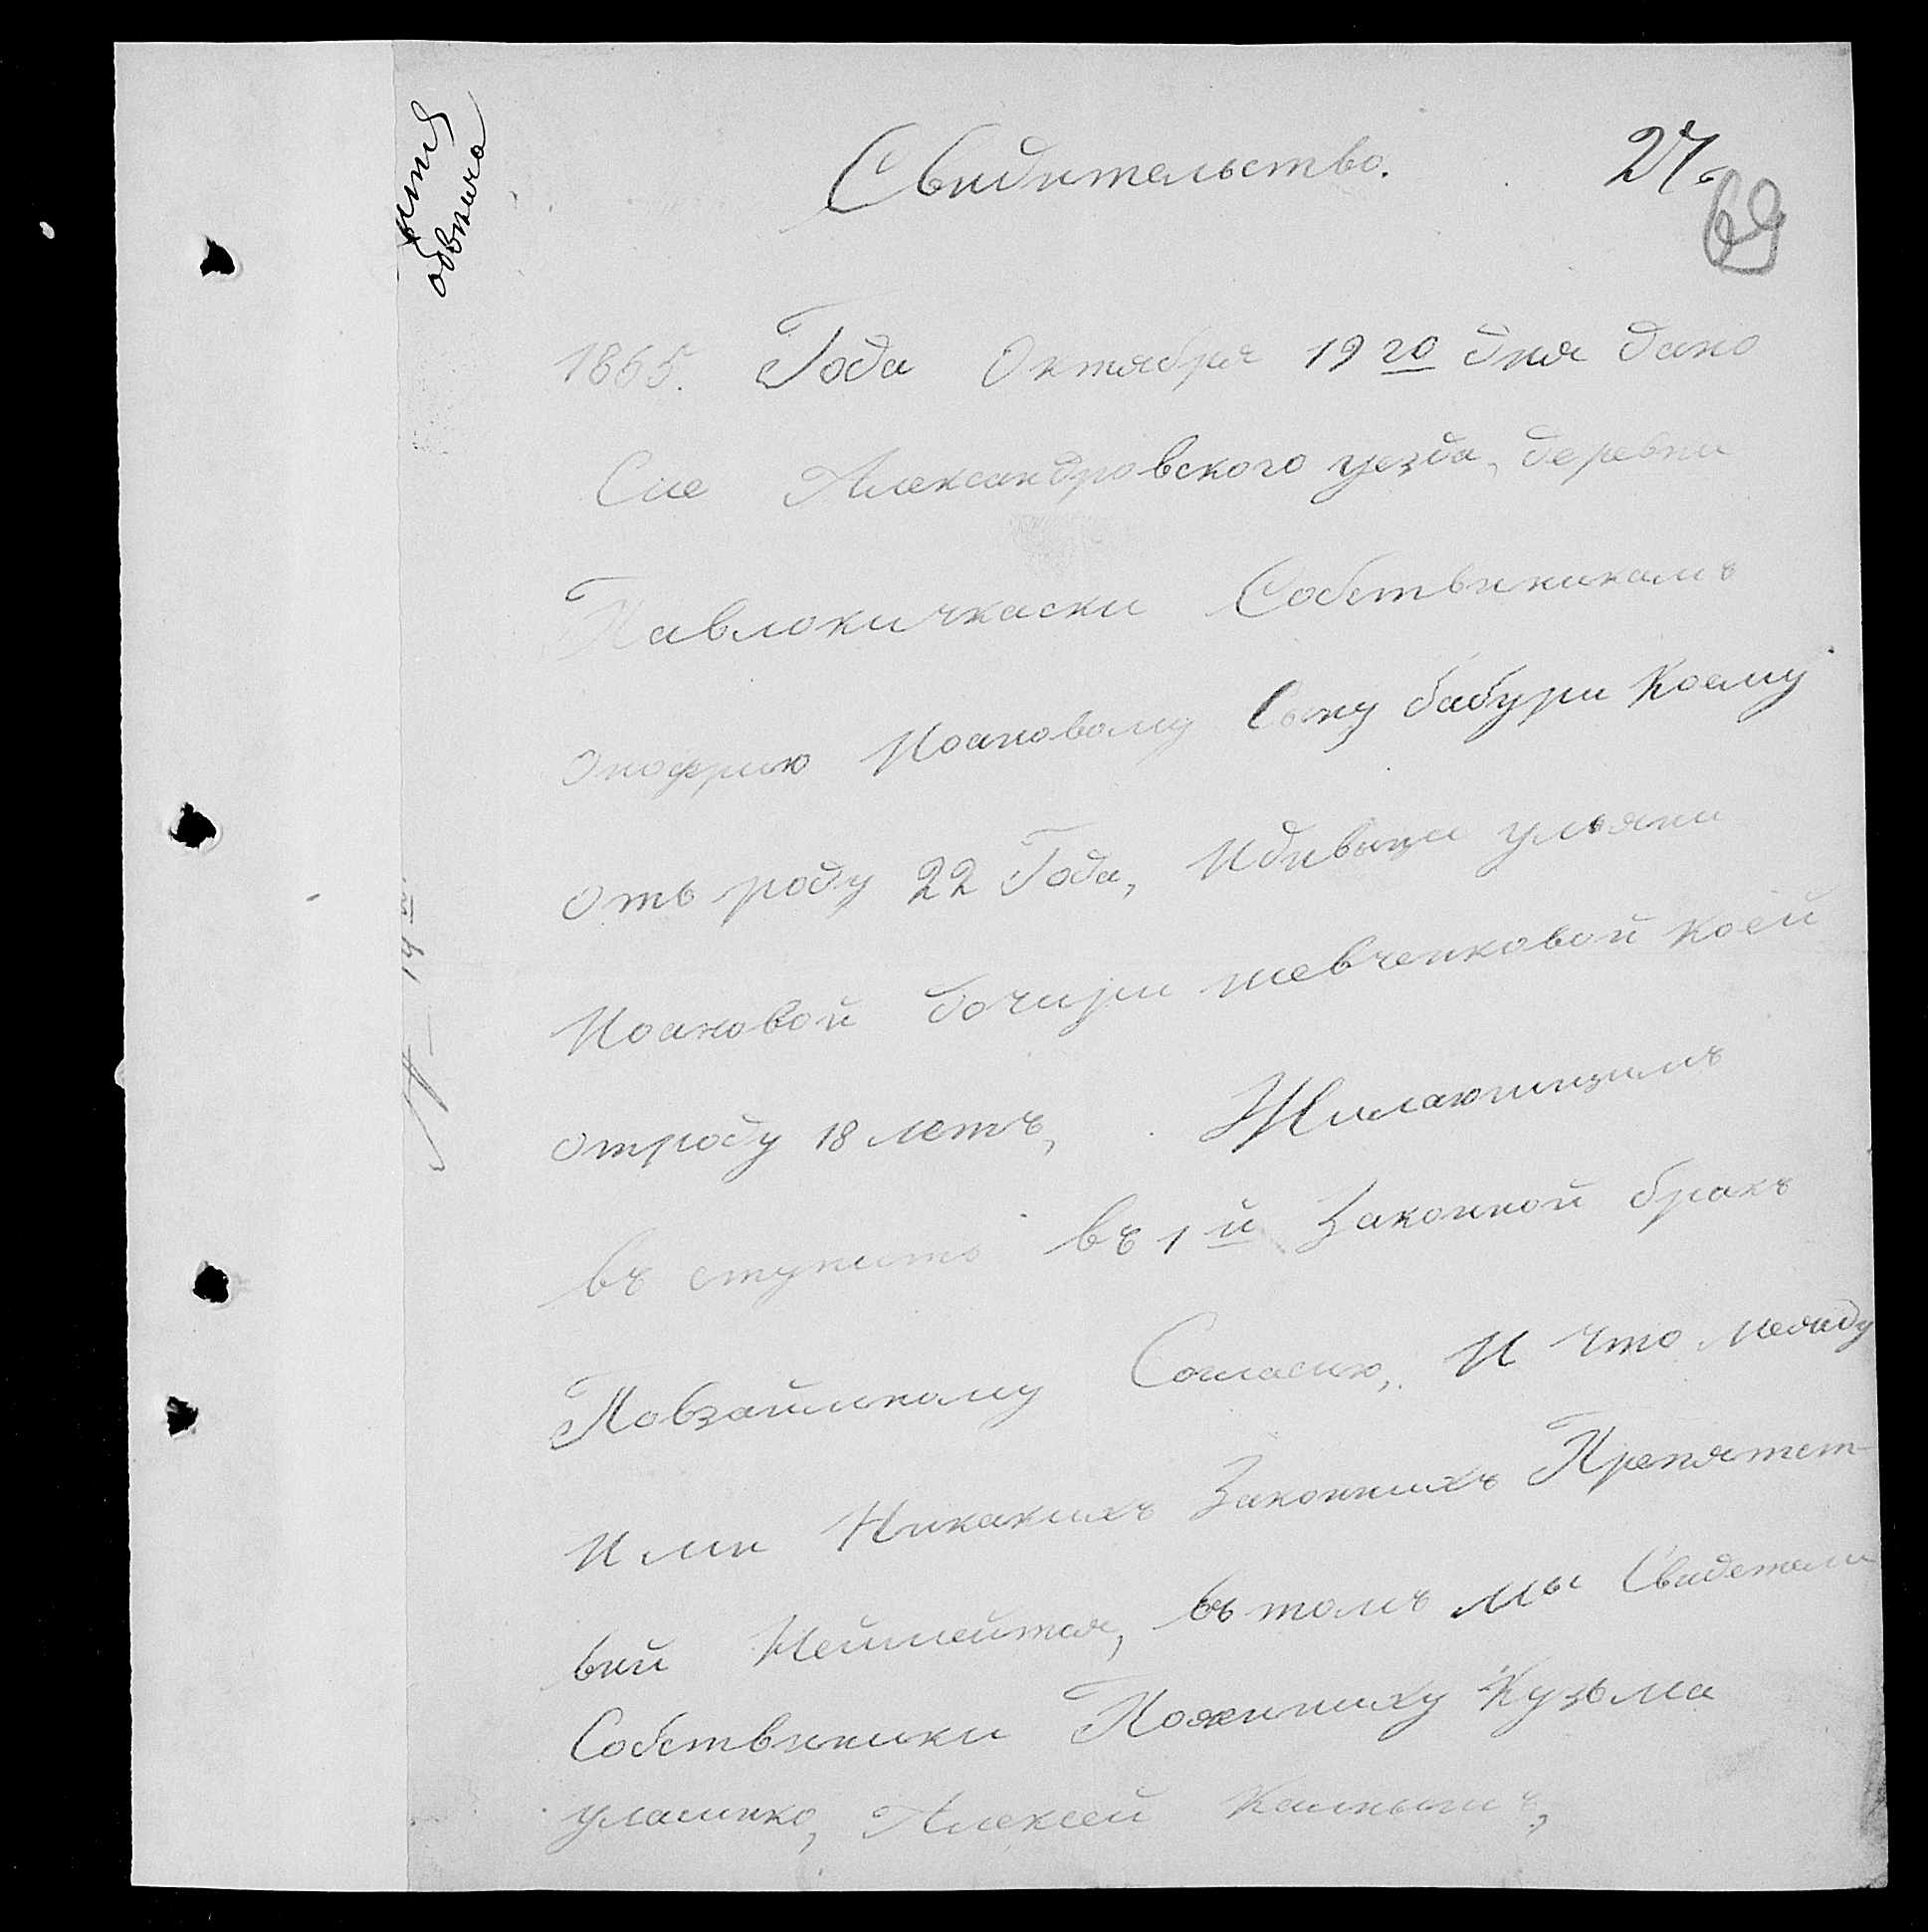 Свидительство. 27.
69
1865. Года Октября 19 го дня дано
Сие Александровского уезда, деревни
Павлокичкаски Собствиникамъ
Онофрию Иоановому Сыну бабури Коему
отъ роду 22 Года, Идивыци ульяни
Иоановой дочири шевченковой коей
отроду 18 летъ, Жилающимъ
въ ступить въ 1 й Законной бракъ
Повзаимному Согласию, И что между
Ими Никакихъ Законнихъ Препятст-
вий Неимейтся, въ томъ мы Свидетели
Собствиники Поженииху Кузьма
уласенко, Алексей Калнышъ,